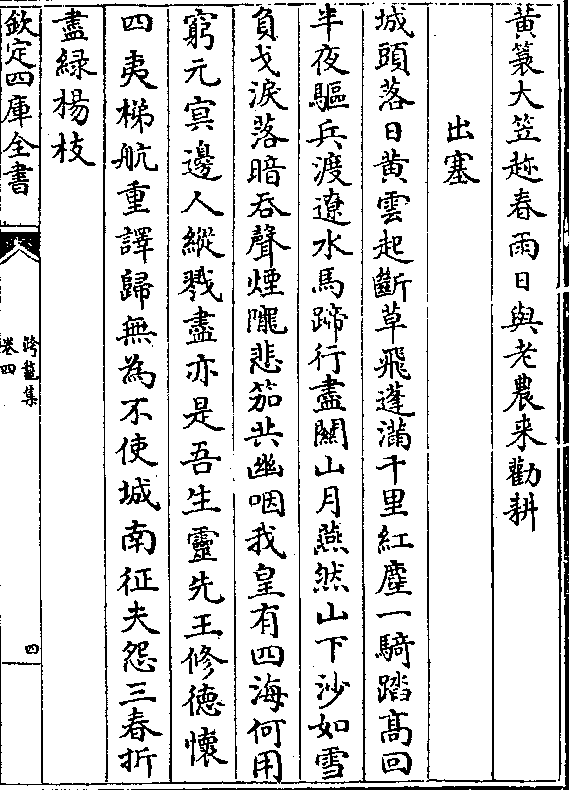 黄蓑大笠趂春雨日與老農来勸耕
出塞
城頭落日黄雲起斷草飛蓬滿千里紅塵一騎踏髙回
半夜驅兵渡遼水馬蹄行盡闗山月燕然山下沙如雪
負戈淚落暗吞聲煙隴悲笳共幽咽我皇有四海何用
窮元㝠邊人縱戮盡亦是吾生靈先王修德懷
四夷梯航重譯歸無為不使城南征夫怨三春折
盡緑楊枝
欽定四庫全書
卷四
四